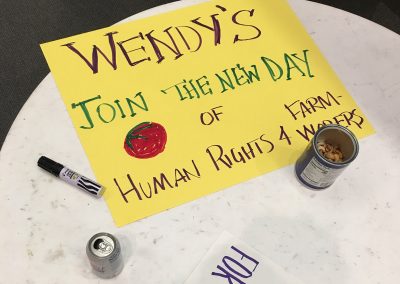 WENDY'S
JOIN THE NEW DAY
OF
FARM-
HUMAN RIGHTS 4 WORKERS
FOR